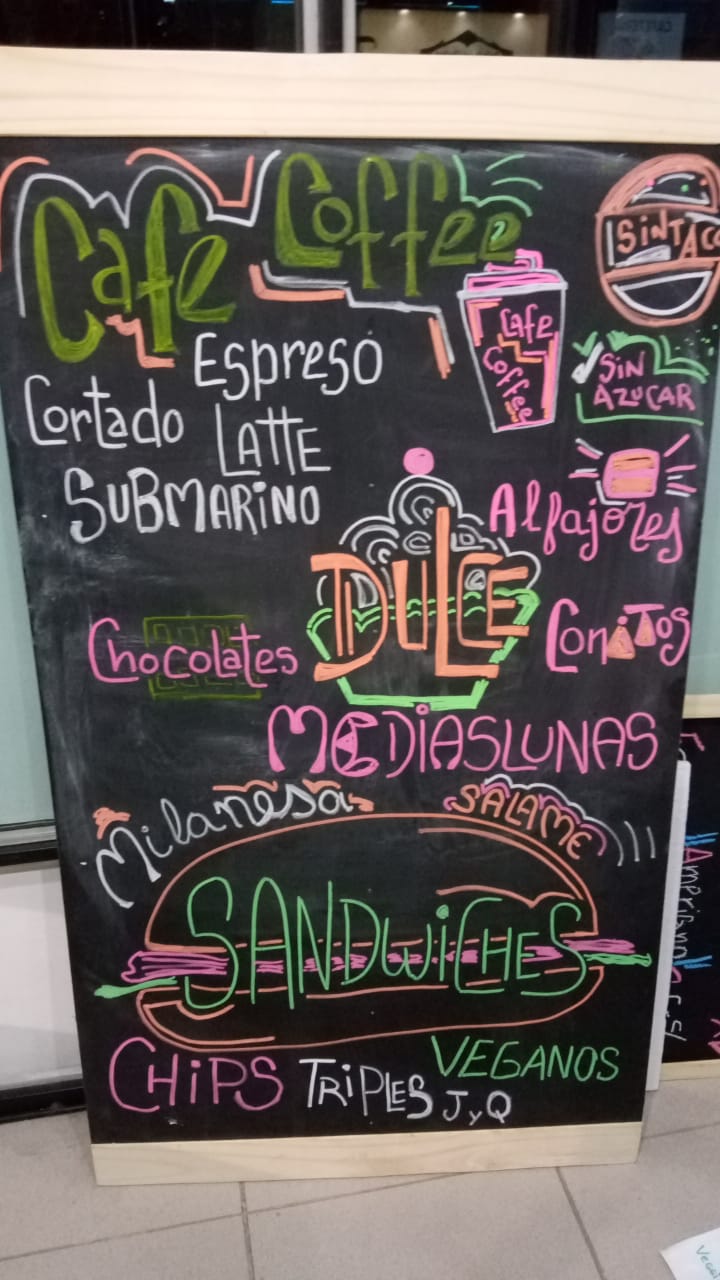 Cafe Coffee
SINTACC
Cafe
Coffee
SIN
AZUCAR
Espreso
Cortado
LATTE
SUBMARINO
Alfajores
DULCE
Chocolates
Conitos
MEDIASLUNAS
Milanesa
SALAME
SANDWICHES
CHIPS
TRIPLES J y Q
VEGANOS